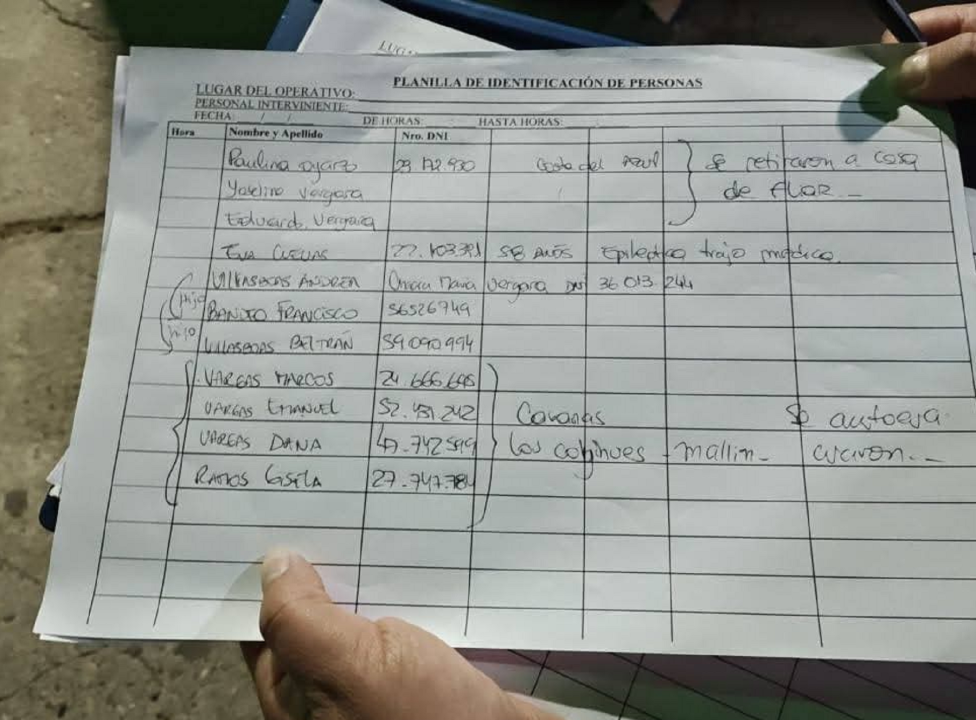 PLANILLA DE IDENTIFICACIÓN DE PERSONAS
LUGAR DEL OPERATIVO:
PERSONAL INTERVINIENTE:
FECHA: / / DE HORAS: HASTA HORAS:
Hora Nombre y Apellido Nro. DNI
Paulina oyarzo 23 172.930 Costa del Azul } se retiraron a casa
Yoselino Vergara de fliar
Eduardo Vergara
Eva Cuevas 58 AÑOS Epileptica trajo medica.
VILLASBOAS ANDREA Maria Vergara DNI 36 013 244
hijo BANDO FRANCISCO 56526749
hijo VILLASBOAS BELTRÁN 59 090 994
VARGAS MARCOS 24.666.645
VARGAS EMANUEL 52.431.242 Cabañas Se autoeva
VARGAS DANA 47.742 599 los mallin - cuaron..-
RAMOS GISELA 27.747.784